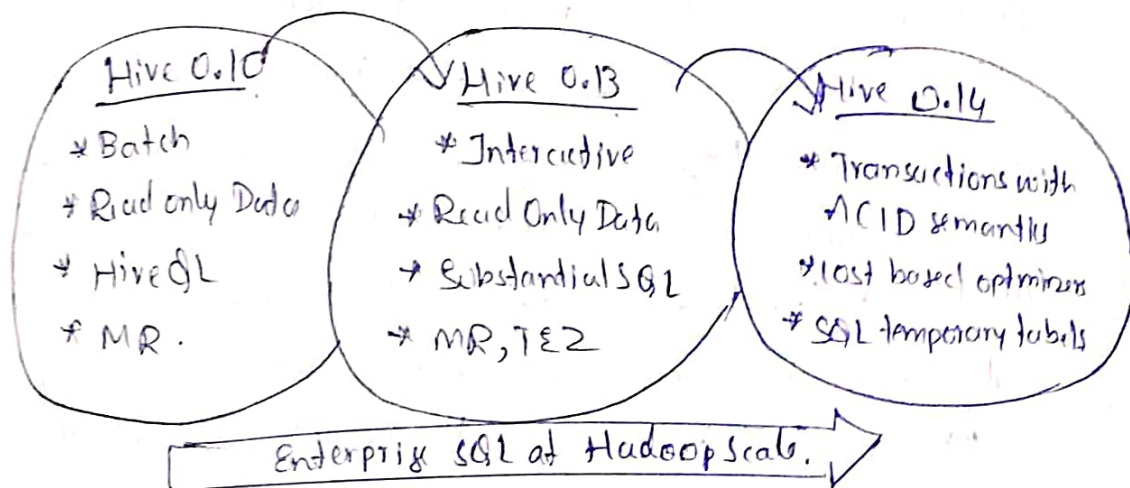 Hive 0.10
* Batch
* Read only Data
* HiveQL
* MR.
Hive 0.13
* Interactive
* Read Only Data
* Substantial SQL
* MR, TEZ
Hive 0.14
* Transactions with
ACID semantics
* Cost based optimizers
* SQL temporary tabels
Enterprise SQL at Hadoop Scale.